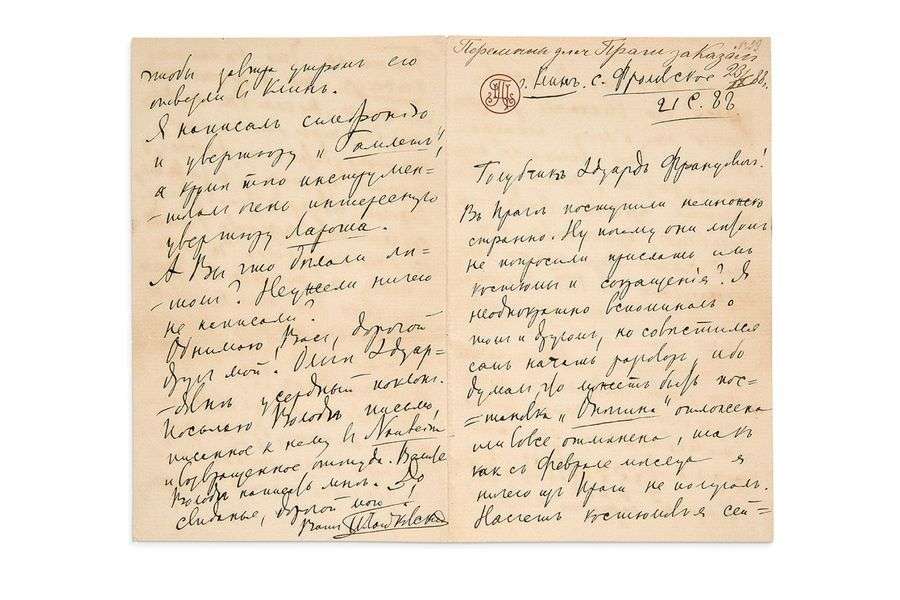 Перемены для Праги заказаны
23/IX 88 г.
г. Клинъ. с. Фроловское
21 С. 88
ПЧ
Голубчикъ Эдуардъ Францовичъ!
Въ Прагѣ поступили немножко
странно. Ну почему они лѣтомъ
не попросили прислать имъ
костюмы и сокращенія? Я
неоднократно вспоминалъ о
томъ и другомъ, но совѣстился
самъ начать разговоръ, ибо
думалъ, что можетъ быть пос=
=тановка „Онѣгина" отложена
или вовсе отмѣнена, такъ
какъ съ Февраля мѣсяца я
ничего изъ Праги не получалъ.
Насчетъ костюмовъ я сей=
чтобы завтра утромъ его
отвезли въ Клинъ.
Я написалъ симфонію
и увертюру „Гамлетъ",
а кромѣ того инструмен=
=товалъ очень интересную
увертюру Лароша.
А Вы что дѣлали лѣ=
=томъ? Неужели ничего
не написали?
Обнимаю Васъ, дорогой
другъ мой. Ольгѣ Эдуар=
=довнѣ усердный поклонъ.
Посылаю Володѣ письмо,
писанное къ нему въ
и возвращенное оттуда. Пусть
Володя напишетъ мнѣ. До
свиданья, дорогой мой!
Вашъ П. Чайковскій